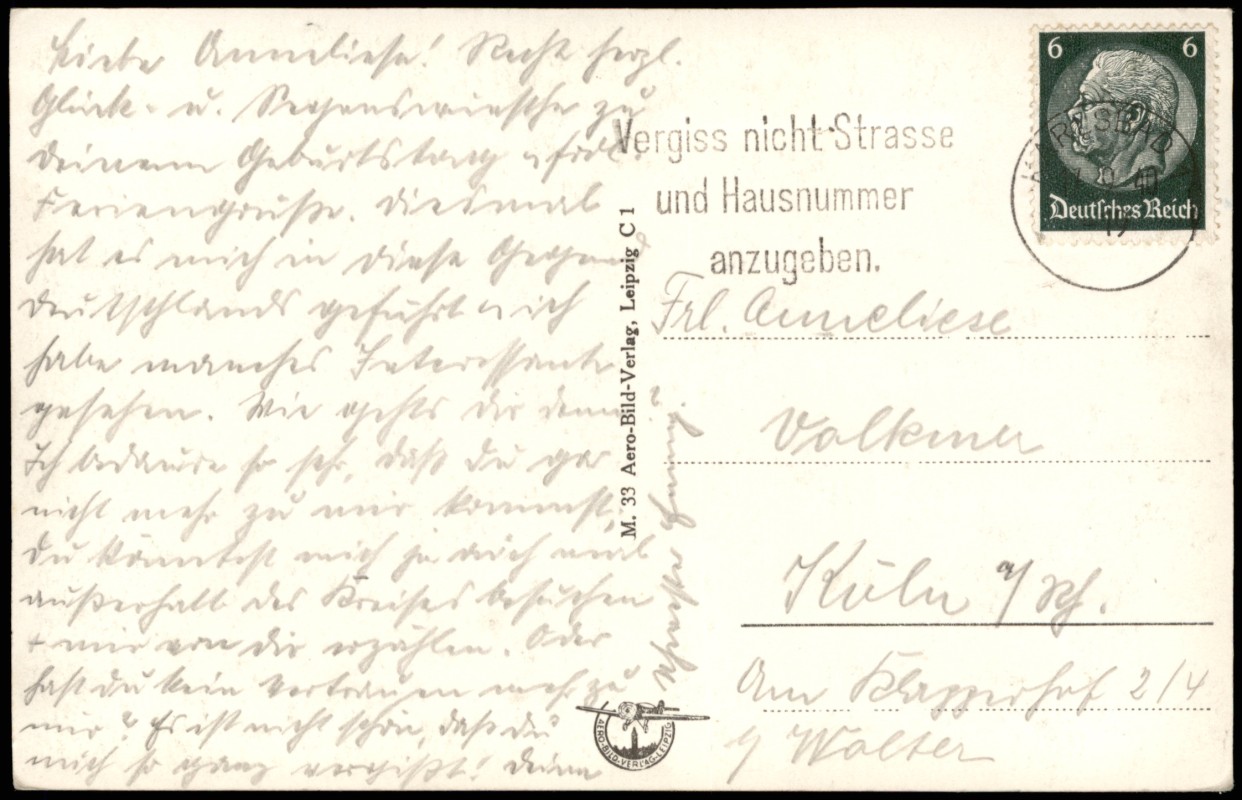 Liebe Anneliese! Recht herzl.
Glück- u. Segenswünsche zu
Deinem Geburtstag u. frdl.
Feriengrüße. Diesmal
hat es mich in diese Gegend
Deutschlands geführt u. ich
habe manches Interessante
gesehen. Wie gehts dir denn?
Ich bedaure so sehr, daß du gar
nicht mehr zu mir kommst,
du könntest mich ja auch mal
außerhalb des Kreises besuchen
+ mir von dir erzählen. Oder
hast du kein Vertrauen mehr zu
mir? Es ist nicht schön, daß du
mich so ganz vergißt! Deine
M. 33 Aero-Bild-Verlag, Leipzig C 1
AERO-BILD-VERLAG-LEIPZIG
Vergiss nicht Strasse
und Hausnummer
anzugeben.
6 6
Deutsches Reich
KARLSBAD
40
19
Frl. Anneliese
Volkmer
Köln a/Rh.
Am Klapperhof 2/4
b/ Wolter